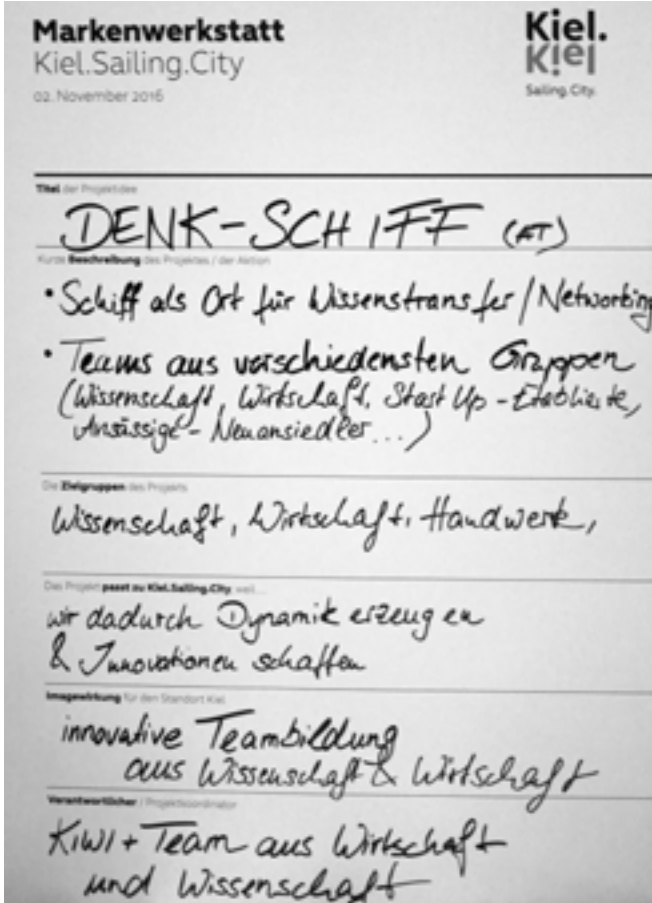 Markenwerkstatt
Kiel.Sailing.City
02. November 2016
Kiel.
Kiel
Sailing.City.
Titel der Projektidee
DENK-SCHIFF (AT)
Kurze Beschreibung des Projektes / der Aktion
• Schiff als Ort für Wissenstransfer / Networking
• Teams aus verschiedensten Gruppen
(Wissenschaft, Wirtschaft, Start Up - Etablierte,
Ansässige - Neuansiedler...)
Die Zielgruppen des Projekts
Wissenschaft, Wirtschaft, Handwerk,
Das Projekt passt zu Kiel.Sailing.City, weil...
wir dadurch Dynamik erzeugen
& Innovationen schaffen
Imagewirkung für den Standort Kiel
innovative Teambildung
aus Wissenschaft & Wirtschaft
Verantwortlicher / Projektkoordinator
KiWi + Team aus Wirtschaft
und Wissenschaft